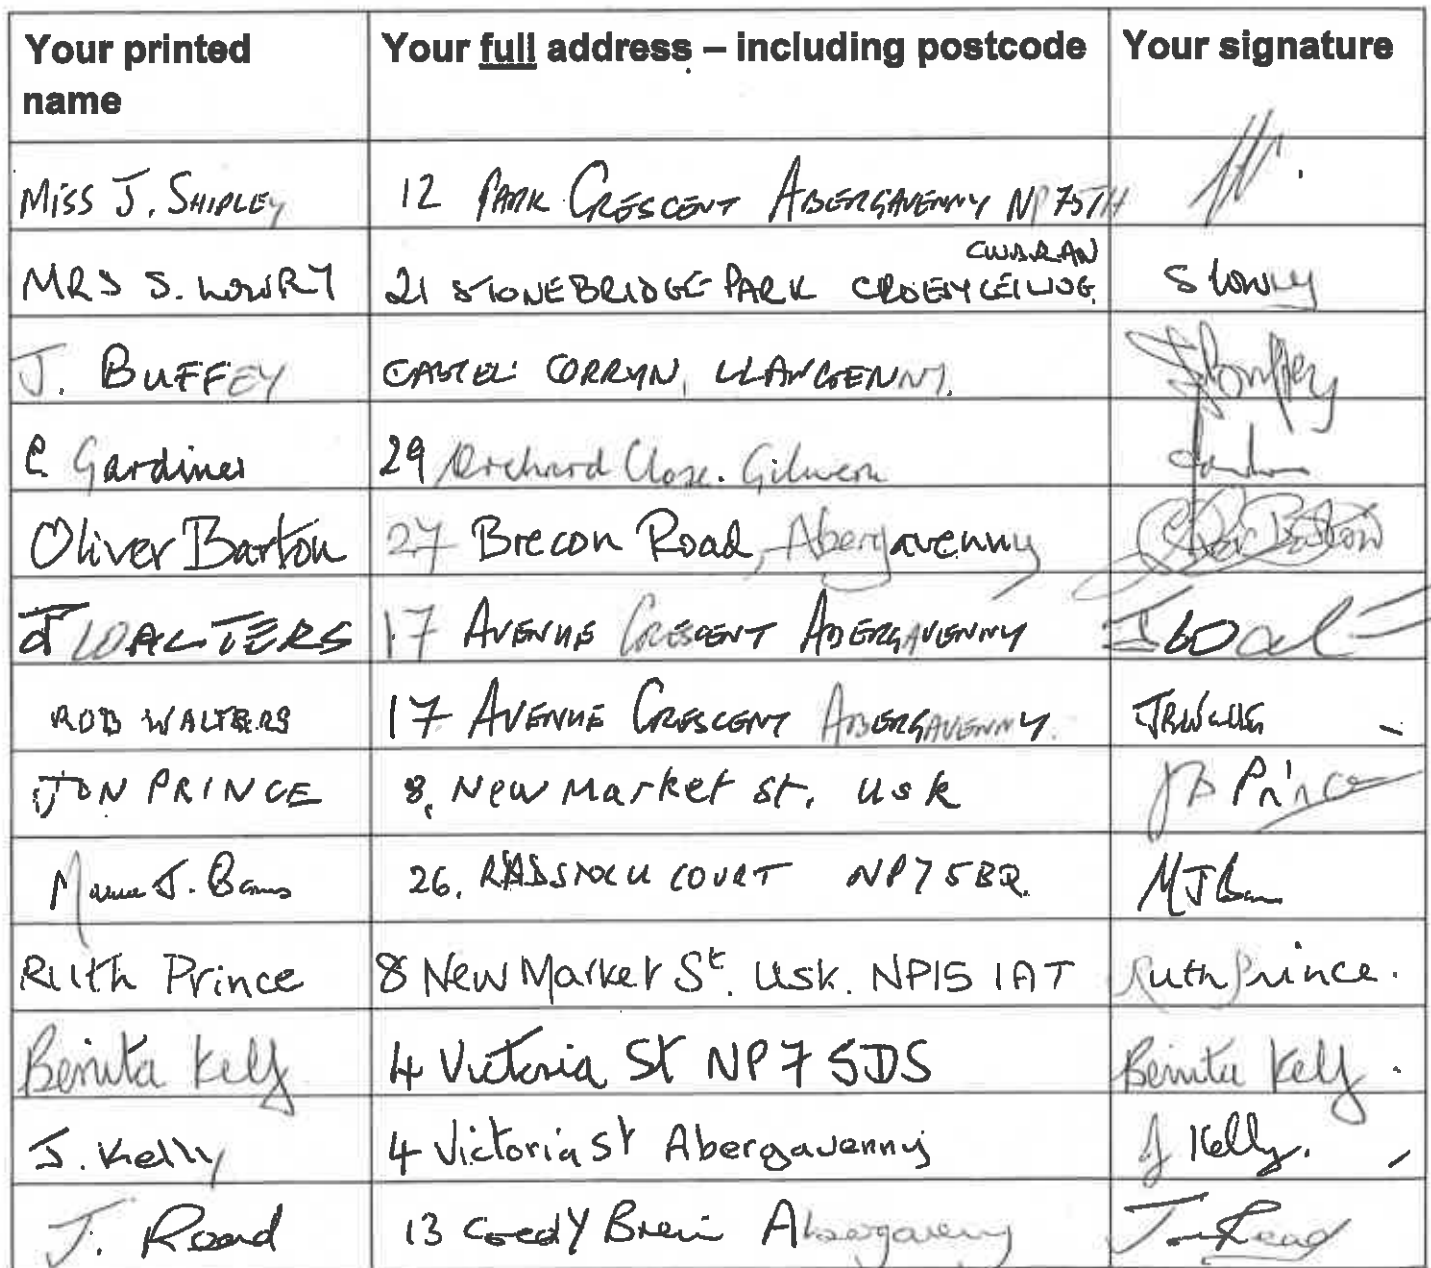 Your printed name
Your full address – including postcode
Your signature
Miss J. Shipley 12 Park Crescent Abergavenny NP7 5TH
MRS S. LOWRY 21 STONEBRIDGE PARK CROESYCEILIOG CWMBRAN S Lowry
J. BUFFEY CASTELL CORRYN, LLANGENNY. J Buffey
C Gardiner 29 Orchard Close. Gilwern
Oliver Barton 27 Brecon Road, Abergavenny Oliver Barton
J WALTERS 17 AVENUE CRESCENT ABERGAVENNY
ROB WALTERS 17 AVENUE CRESCENT ABERGAVENNY.
JON PRINCE 8, New Market St. Usk Prince
J. 26, COURT NP7 5BQ. MJ
Ruth Prince 8 New Market St. Usk. NP15 1AT Ruth Prince.
Benita Kelly 4 Victoria St NP7 5DS Benita Kelly.
J. Kelly 4 Victoria St Abergavenny J Kelly.
J. 13 Coed Y Abergavenny